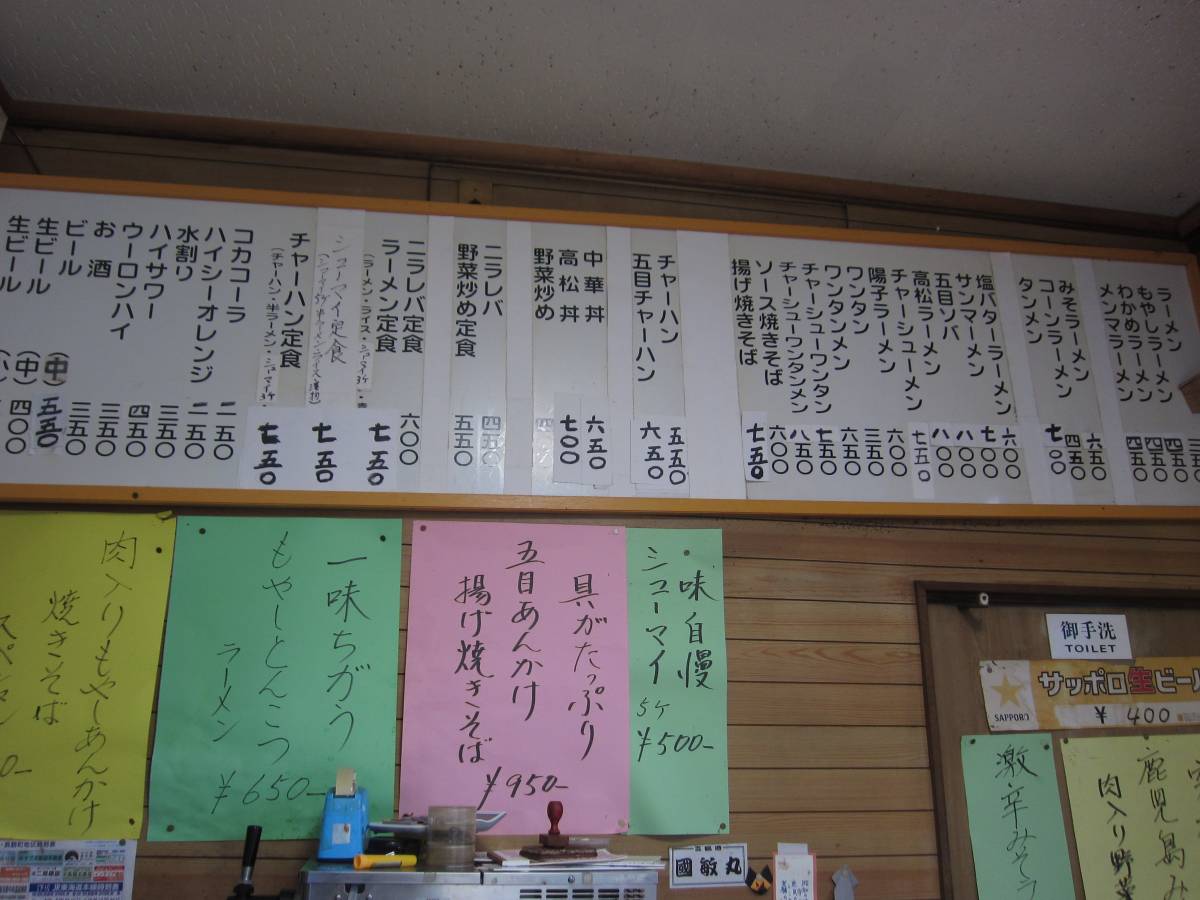 ラーメン
もやしラーメン 四五〇
わかめラーメン 四五〇
メンマラーメン 四五〇
みそラーメン 六五〇
コーンラーメン 四五〇
タンメン 七〇〇
塩バターラーメン 六〇〇
サンマーメン 七〇〇
五目ソバ 八〇〇
高松ラーメン 八〇〇
チャーシューメン 七五〇
陽子ラーメン 六〇〇
ワンタン 三五〇
ワンタンメン 六五〇
チャーシューワンタン 七五〇
チャーシューワンタンメン 八五〇
ソース焼きそば 六〇〇
揚げ焼きそば 七五〇
チャーハン 五五〇
五目チャーハン 六五〇
中華丼 六五〇
高松丼 七〇〇
野菜炒め
ニラレバ 四五〇
野菜炒め定食 五五〇
ニラレバ定食 六〇〇
ラーメン定食 七五〇
シューマイ定食 七五〇
チャーハン定食 七五〇
(チャーハン・半ラーメン・シューマイ3ケ)
コカコーラ 二五〇
ハイシーオレンジ 二五〇
水割り 三五〇
ハイサワー 四五〇
ウーロンハイ 三五〇
お酒 三五〇
ビール (中) 五五〇
生ビール (中) 四〇〇
生ビール
味自慢
シューマイ
5ケ
¥500-
具がたっぷり
五目あんかけ
揚げ焼きそば
¥950-
一味ちがう
もやしとんこつ
ラーメン
¥650-
肉入りもやしあんかけ
焼きそば
御手洗
TOILET
サッポロ生ビール
SAPPORO
¥400
鹿児島み
肉入り野菜
激辛みそラ
國敏丸